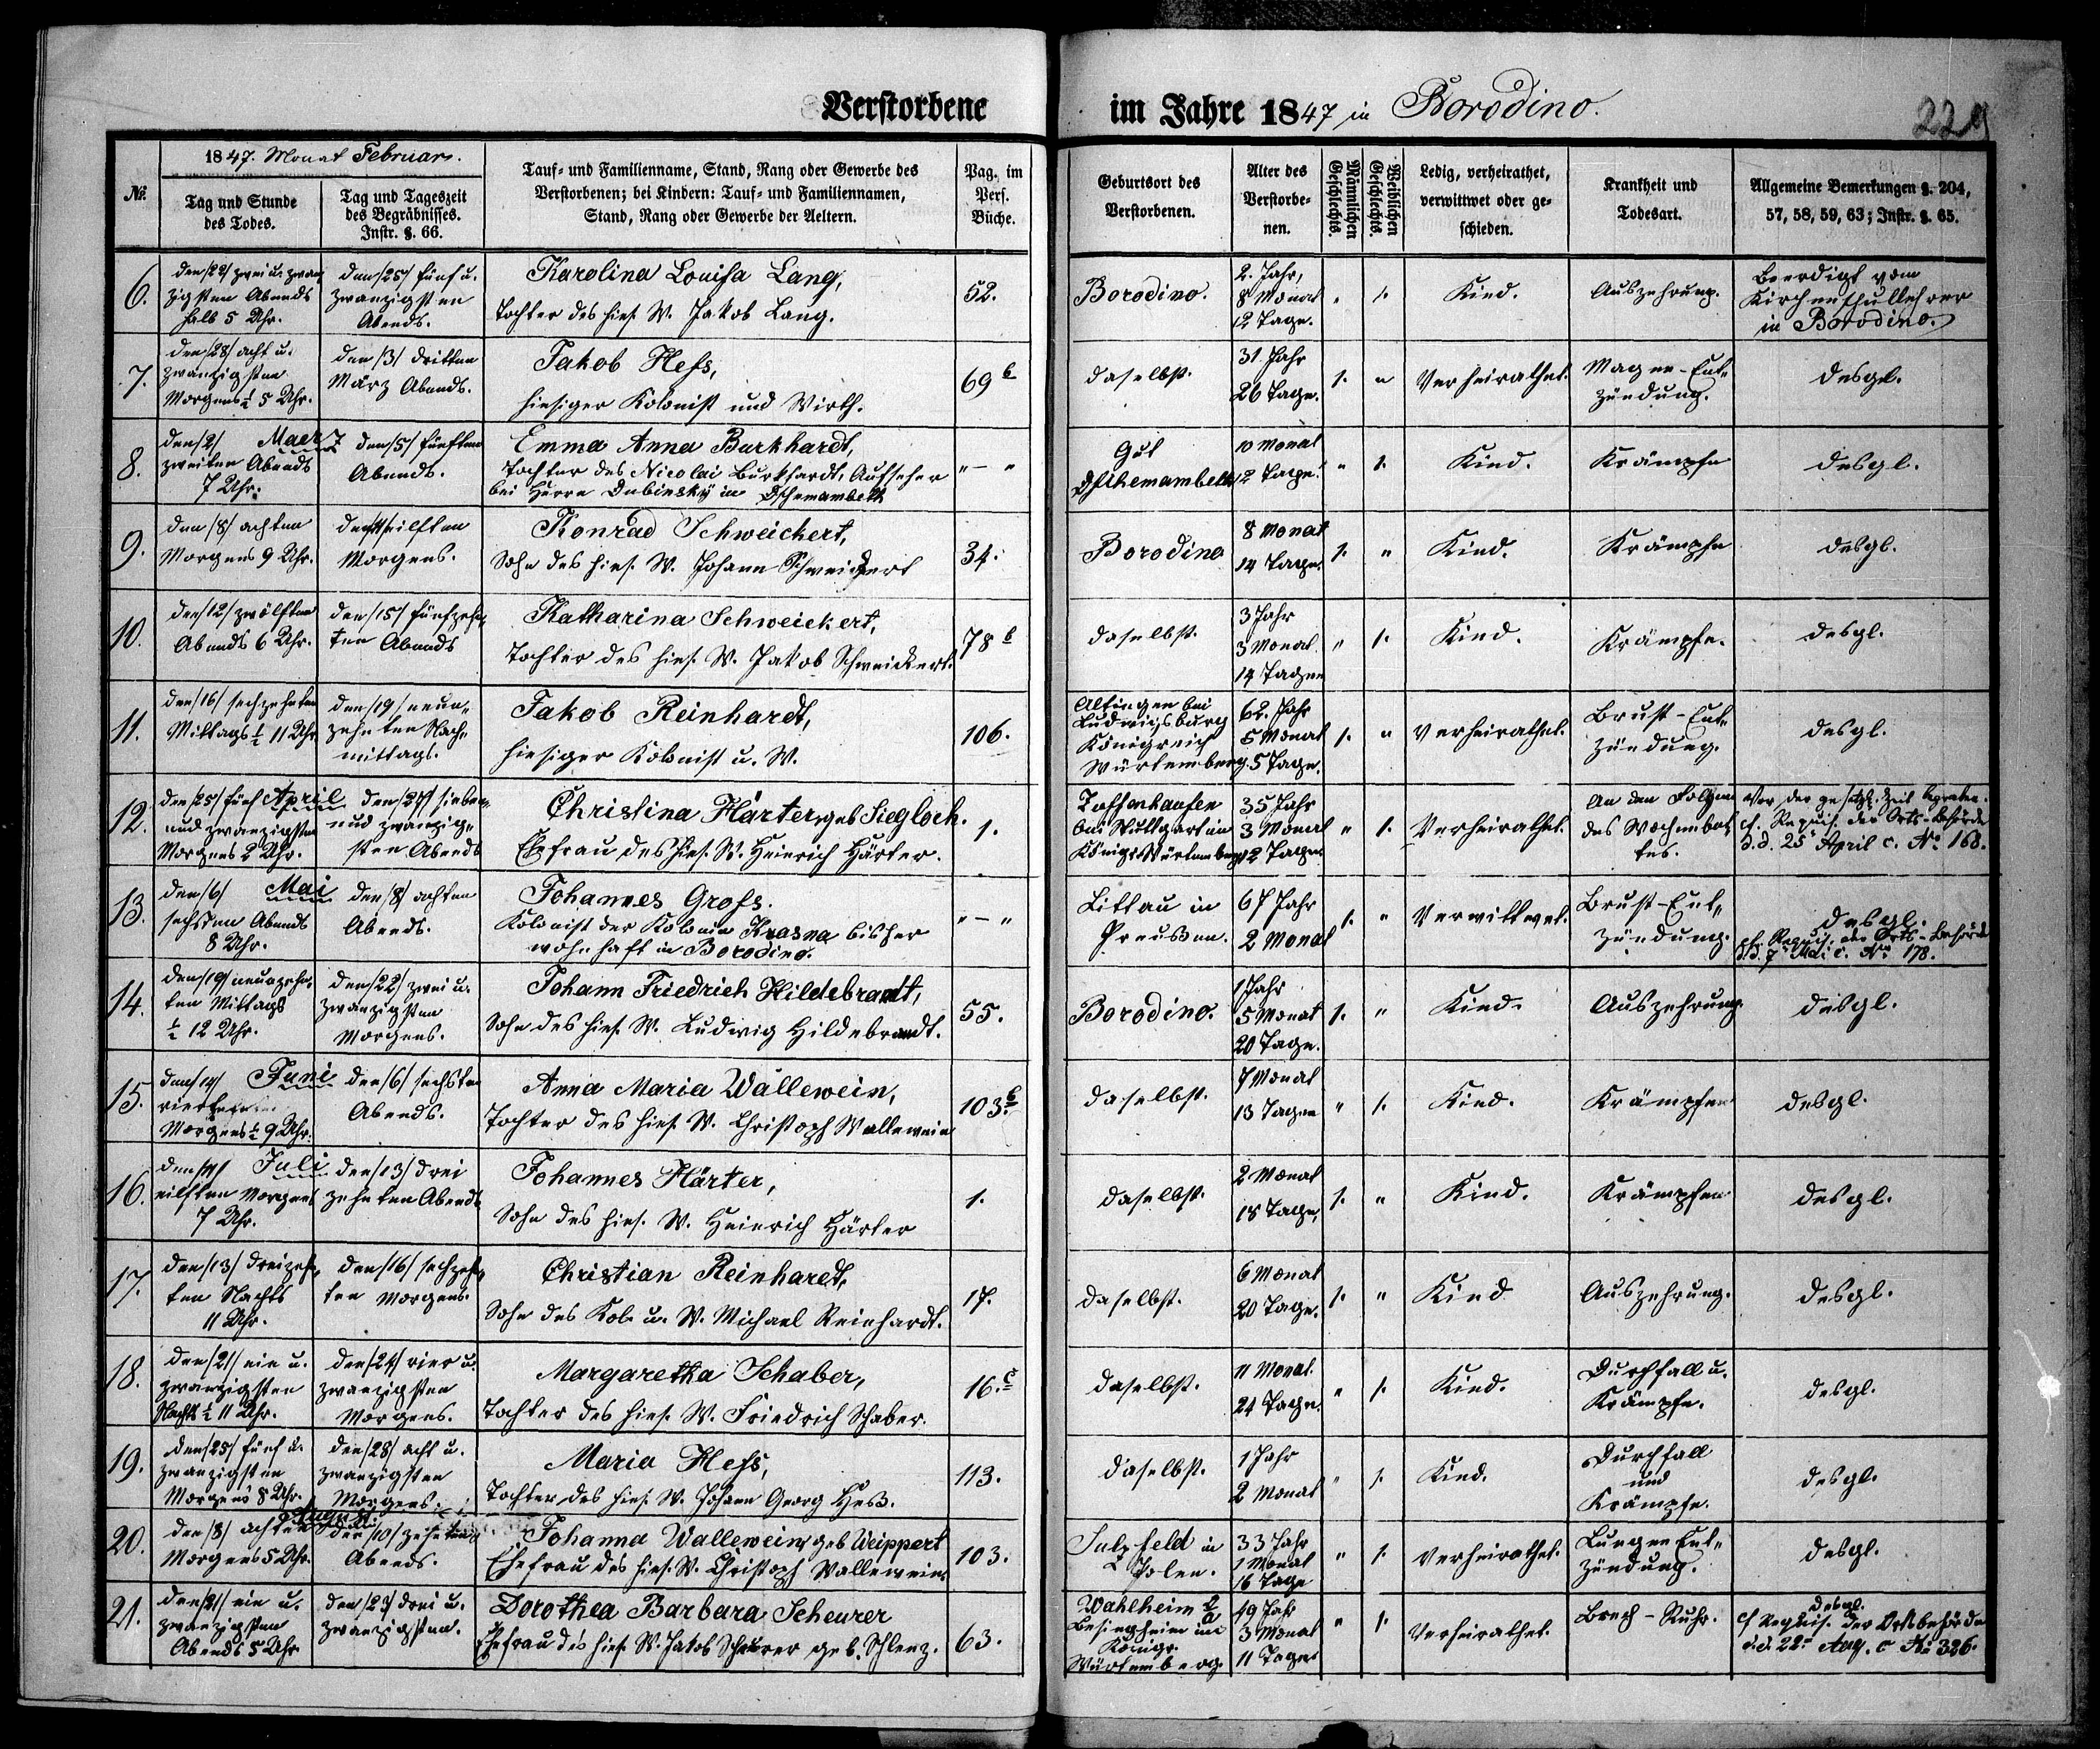 Verstorbene im Jahre 1847 in Borodino.
229
No.
1847. Monat Februar.
Tag und Stunde
des Todes.
Tag und Tageszeit
des Begräbnisses.
Instr. §. 66.
Tauf- und Familienname, Stand, Rang oder Gewerbe des
Verstorbenen; bei Kindern: Tauf- und Familiennamen,
Stand, Rang oder Gewerbe der Aeltern.
Pag. im
Pers.
Büche.
Geburtsort des
Verstorbenen.
Alter des
Verstorbe-
nen.
Männlichen
Geschlechts.
Weiblichen
Geschlechts.
Ledig, verheirathet,
verwittwet oder ge-
schieden.
Krankheit und
Todesart.
Allgemeine Bemerkungen §. 204,
57, 58, 59, 63; Instr. §. 65.
6.
den /22/ zwei u. zwan
zigsten Abends
halb 5 Uhr.
den /25/ fünf u.
zwanzigsten
Abends.
Karolina Louisa Lang,
Tochter des hies. W. Jakob Lang.
52.
Borodino.
2. Jahr,
8 Monat
12 Tage.
" 1.
Kind.
Auszehrung.
Beerdigt vom
Kirchenschullehrer
in Borodino.
7.
den /28/ acht u.
zwanzigsten
Morgens ½ 5 Uhr.
den /3/ dritten
März Abends.
Jakob Heß,
hiesiger Kolonist und Wirth.
69 b
daselbst.
31 Jahr
26 Tage.
1. "
Verheirathet.
Magen-Ent„
zündung.
desgl.
8.
den /2/ Maerz
zweiten Abends
7 Uhr.
den /5/ fünften
Abends.
Emma Anna Burkhardt,
Tochter des Nicolai Burkhardt, Aufseher
bei Herrn Dubinsky in Dschemambett
" – "
Gut
Dschemambett
10 Monat
12 Tage.
" 1.
Kind.
Krämpfe
desgl.
9.
den /8/ achten
Morgens 9 Uhr.
den /11/ eilften
Morgens.
Konrad Schweickert,
Sohn des hies. W. Johann Schweickert
34.
Borodino
8 Monat
14 Tage.
1. "
Kind.
Krämpfe
desgl.
10.
den /12/ zwölften
Abends 6 Uhr.
den /15/ fünfzehn„
ten Abends
Katharina Schweickert,
Tochter des hies. W. Jakob Schweickert.
78 b
daselbst.
3 Jahr
3 Monat
14 Tagen
" 1.
Kind.
Krämpfe.
desgl.
11.
den /16/ sechzehnten
Mittags ½ 11 Uhr
den /19/ neun„
zehnten Nach„
mittags.
Jakob Reinhardt,
hiesiger Kolonist u. W.
106.
Altingen bei
Ludwigsburg
Königreich
Würtemberg.
62. Jahr
5 Monat
5 Tage.
1. "
Verheirathet.
Brust-Ent„
zündung.
desgl.
12.
den /25/ fünf April
und zwanzigsten
Morgens 2 Uhr.
den /27/ sieben„
und zwanzig„
sten Abends
Christina Härter, geb Siegloch.
Ehefrau des hies. W. Heinrich Härter.
1.
Zuffenhausen
bei Stuttgart im
Königr. Würtemberg
35 Jahr
3 Monat
12 Tage
" 1.
Verheirathet.
An den Folgen
des Wochenbet
tes.
Vor der gesetzl. Zeit begraben.
cf. Requis. der Orts-Behörde
d.d. 25 April c. No 168.
13.
den /6/ Mai
sechsten Abends
8 Uhr.
den /8/ achten
Abends.
Johannes Groß.
Kolonist der Kolonie Krasna bisher
wohnhaft in Borodino.
" – "
Littau in
Preussen.
67 Jahr
2 Monat
1. "
Verwittwet.
Brust-Ent„
zündung.
desgl.
cf. Requis. der Orts-Behörde
d.d. 7 Mai c. No 178.
14.
den /19/ neunzehn„
ten Mittags
½ 12 Uhr.
den /22/ zwei u.
zwanzigsten
Morgens.
Johann Friedrich Hildebrandt,
Sohn des hies. W. Ludwig Hildebrandt.
55.
Borodino.
1 Jahr
5 Monat
20 Tage.
1. "
Kind.
Auszehrung
desgl.
15.
Juni
Morgens ½ 9 Uhr.
den /6/ sechsten
Abends.
Anna Maria Wallewein,
Tochter des hies. W. Christoph Wallewein
103. b
daselbst.
7 Monat
13 Tagen
" 1.
Kind.
Krämpfen
desgl.
16.
den /11/ Juli
eilften Morgens
7 Uhr.
den /13/ drei
zehnten Abends
Johannes Härter,
Sohn des hies. W. Heinrich Härter
1.
daselbst.
2 Monat
18 Tage,
1. "
Kind.
Krämpfen
desgl.
17.
den /13/ dreizehn„
ten Nachts
11 Uhr.
den /16/ sechzehn„
ten Morgens.
Christian Reinhardt,
Sohn des Kol. u. W. Michael Reinhardt.
17.
daselbst.
6 Monat
20 Tage.
1. "
Kind
Auszehrung.
desgl.
18.
den /21/ ein u.
zwanzigsten
Nachts ½ 11 Uhr.
den /24/ vier u.
zwanzigsten
Morgens.
Margaretha Schaber,
Tochter des hies. W. Friedrich Schaber.
16. c
daselbst.
11 Monat
24 Tage.
" 1.
Kind.
Durchfall u.
Krämpfe.
desgl.
19.
den /25/ fünf u.
zwanzigsten
Morgens 8 Uhr.
den /28/ acht u.
zwanzigsten
Morgens.
Maria Heß,
Tochter des hies. W. Johann Georg Heß.
113.
daselbst.
1 Jahr
2 Monat
" 1.
Kind.
Durchfall
und
Krämpfe.
desgl.
20.
August
den /8/ achten
Morgens 5 Uhr.
den /10/ zehnten
Abends.
Johanna Wallewein, geb Weippert
Ehefrau des hies. W. Christoph Wallewein.
103.
Sulzfeld in
Polen.
33 Jahr
1 Monat
16 Tage
" 1.
Verheirathet.
Lungen Ent„
zündung.
desgl.
21.
den /21/ ein u.
zwanzigsten
Abends 5 Uhr
den /23/ drei u.
zwanzigsten.
Dorothea Barbara Scheurer
Ehefrau des hies. W. Jakob Scheurer geb. Schlenz.
63.
Wahlheim
Besingheim im
Königr.
Würtemberg.
49 Jahr
3 Monat
11 Tage
" 1.
Verheirathet.
Brech-Ruhr.
desgl.
cf Requis. der Ortsbehörde
d.d. 22 Aug. c No 326.